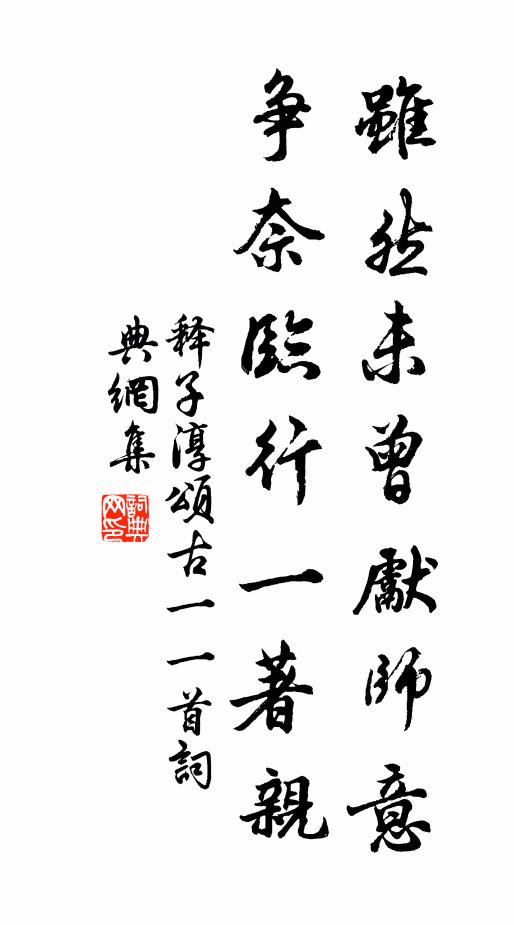 雖然未曾獻師意
争奈臨行一著親
释子淳頌古一一首詞
典網集
詞典网印